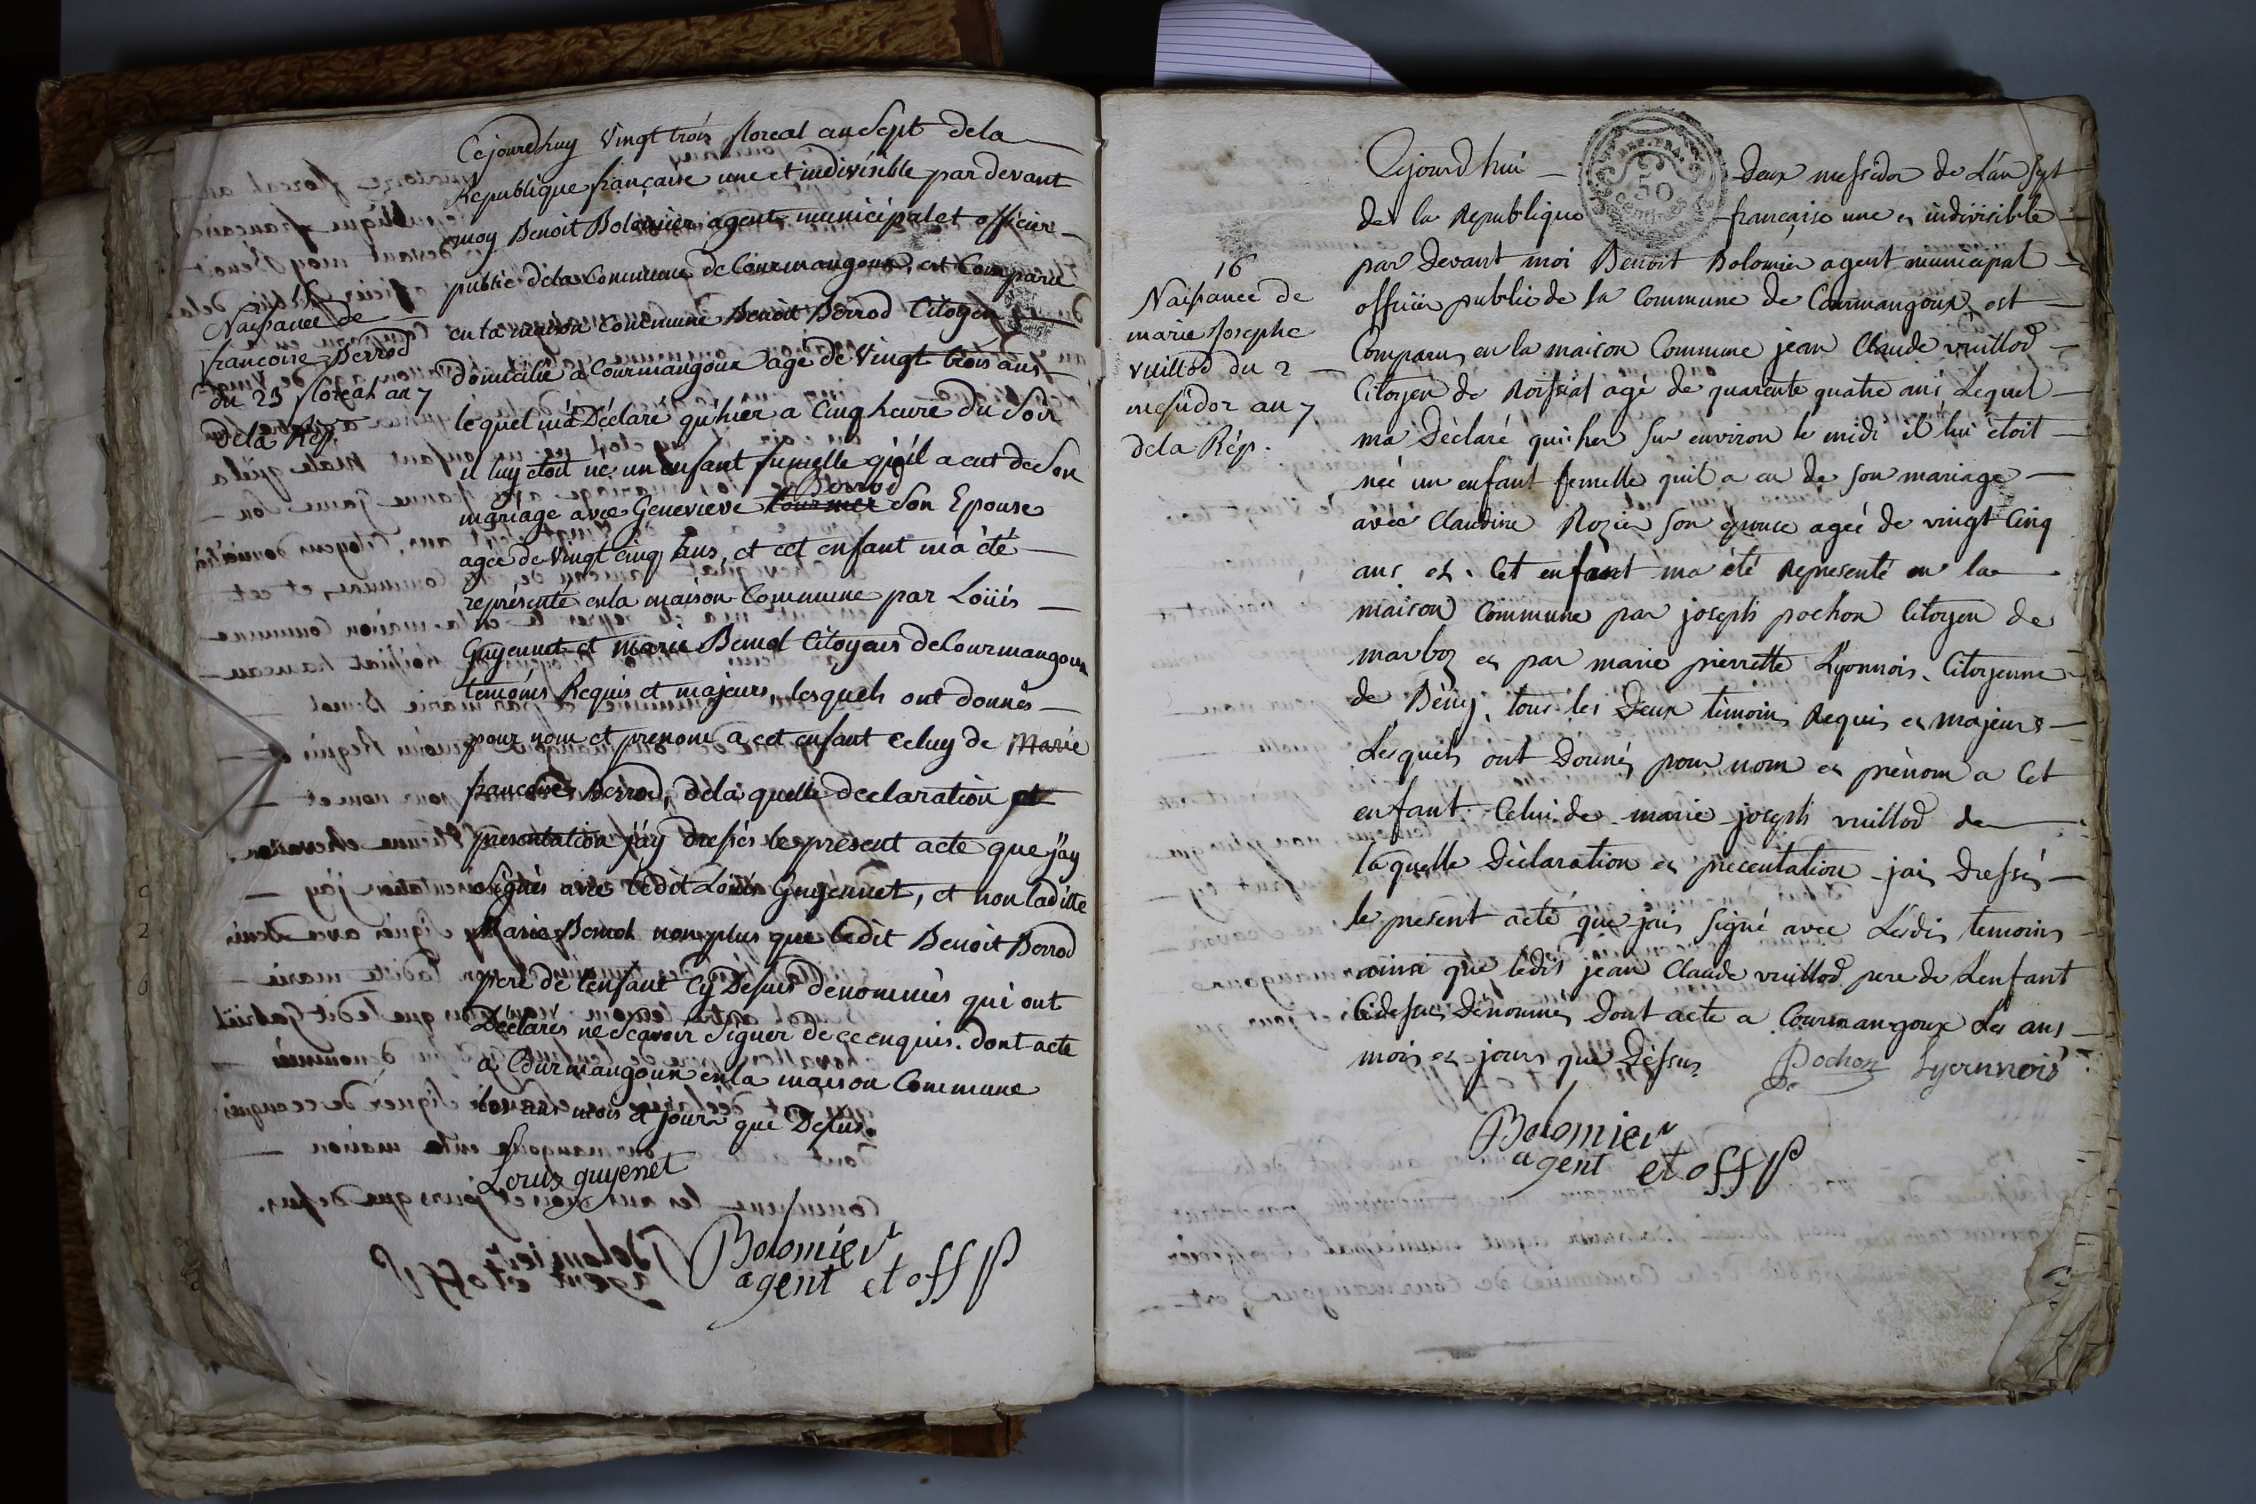 Cejourdhuy Vingt trois floreal an Sept dela
Republique française une et indivisible par devant
moy Benoit Bolomier agent municipal et officier
public dela Commune de Courmangoux, est Comparu
en la maison Commune Benoit Berrod Citoyen
domicilié a Courmangoux agé de Vingt trois ans
lequel m'a Déclaré qu'hier a Cinq heure du Soir
il luy etoit né un enfant fumelle qu'il a eut de Son
Berrod
mariage avec Genevieve Son Epouse
agée de Vingt cinq ans, et cet enfant m'a été
représenté en la maison Commune par Loüis
Guyennet et Marie Benod Citoyens de Courmangoux
temoins Requis et majeurs, lesquels ont donnés
pour nom et prenom a cet enfant Celuy de Marie
francoise Berrod, de la quelle declaration et
presentation j'ay dressés le present acte que j'ay
Signés avec ledit Loüis Guyennet, et non laditte
Marie Benod non plus que ledit Benoit Berrod
pere de l'enfant Cy Dessus dénommés qui ont
Déclarés ne Scavoir Signer de ce enquis. dont acte
a Courmangoux en la maison Commune
les ans mois et jour que Dessus.
Louis guyenet
Bolomier
agent et off p
Naissance de
francoise Berrod
du 23 floreal an 7
dela Rep.
16
Naissance de
marie Josephe
vuillod du 2
messidor an 7
dela Rép.
REP. FRA.
50
centimes
Cejourd'hui Deux messidor de L'an Sept
de la Republique française une et indivisible
par Devant moi Benoit Bolomier agent municipal
officier public de la Commune de Courmangoux est
Comparu en la maison Commune jean Claude vuillod
Citoyen de Roissiat agé de quarente quatre ans, Lequel
ma Déclaré qui'her sur environ le midi il lui étoit
née un enfant femelle quil a eu de son mariage
avec Claudine Rozier son epouse agée de vingt Cinq
ans et Cet enfant ma été Representé en la
maison Commune par joseph pochon Citoyen de
marboz et par marie pierrette Lyonnois, Citoyenne
de Bény, tous les Deux témoins Requis et majeurs
Lesquels ont Donnés pour nom et prènom a Cet
enfant Celui de marie joseph vuillod de
laquelle Dèclaration et presentation jais Dressés
le present acte que jais signé avec Lesdis temoins
ainsi que ledis jean Claude vuillod pere de L'enfant
Cidessus Dénommés Dont acte a Courmangoux Les ans
mois et jours que Dessus
Pochon Lyonnois
Bolomier
agent et off p